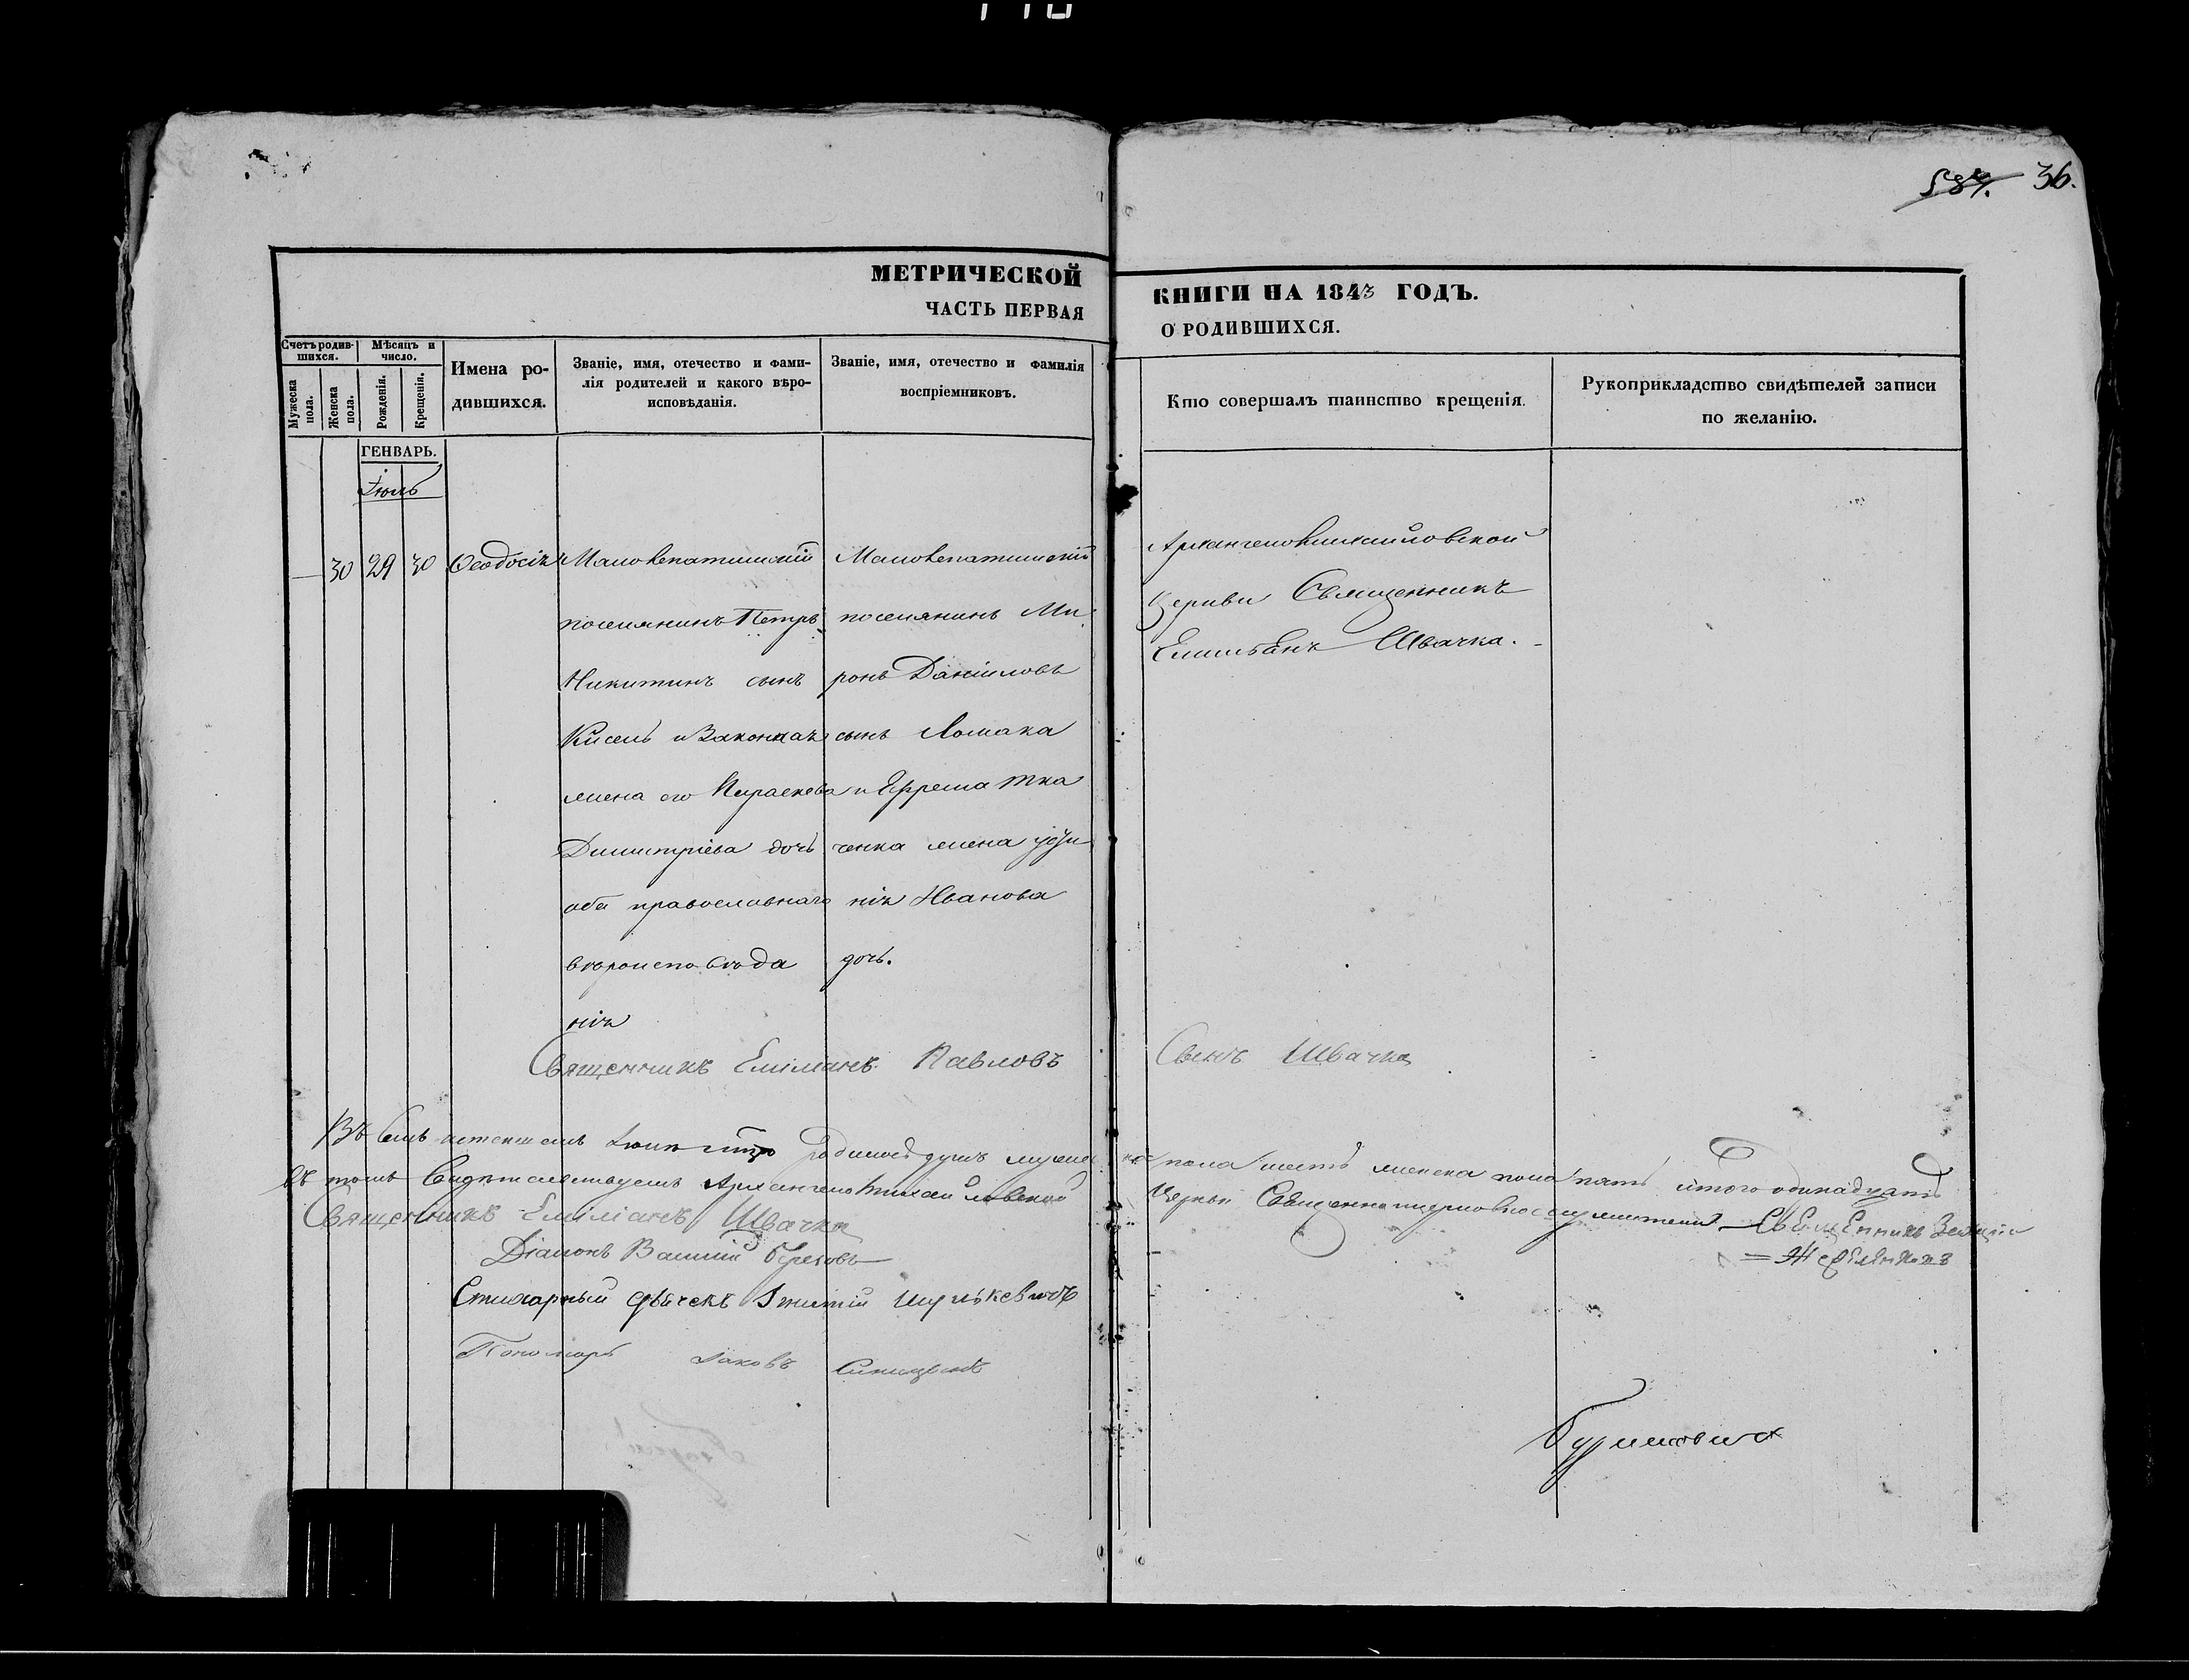 36.
МЕТРИЧЕСКОЙ
КНИГИ НА 1843 ГОДЪ.
ЧАСТЬ ПЕРВАЯ
О РОДИВШИХСЯ.
Счетъ родив-
шихся.
Мѣсяцъ и
число.
Мужеска
пола.
Женска
пола.
Рожденія.
Крещенія.
Имена ро-
дившихся.
Званіе, имя, отечество и фами-
лія родителей и какого вѣро-
исповѣданія.
Званіе, имя, отечество и фамилія
воспріемниковъ.
Кто совершалъ таинство крещенія.
Рукоприкладство свидѣтелей записи
по желанію.
ГЕНВАРЬ.
Іюль
30 29 30 Ѳеодосія
поселянинъ Петръ
Никитинъ сынъ
Кисель и Законная
жена его Параскева
Димитріева дочь
оба православнаго
вѣроисповѣда
нія
поселянинъ Ми
ронъ Даніиловъ
сынъ Ломака
и Ефрема Тка
ченка жена
нія Иванова
дочь.
Архангеломихайловской
Церкви Священникъ
Емиліанъ Швачка.
Священникъ Емиліанъ Павловъ
Сынъ Швачка
Въ Семъ Іюлѣ родилось душъ мужеска пола шесть женска пола пять итого одинадцать
въ томъ Свидѣтельствуемъ Архангело Михайловской Церкви
Священникъ Емиліанъ Швачка
Діаконъ Василій
Стихарный дьячекъ
Пономарь Іаковъ